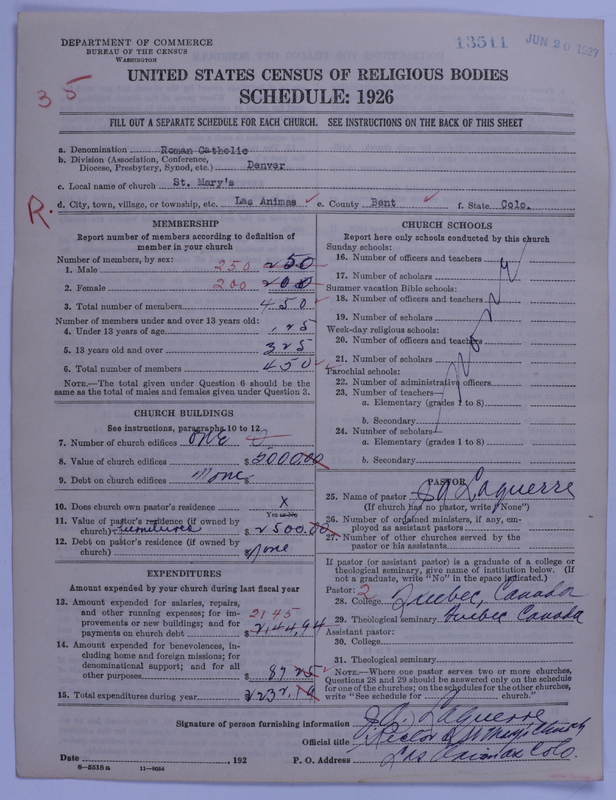 DEPARTMENT OF COMMERCE
BUREAU OF THE CENSUS
WASHINGTON
13511 JUN 20 1927
35
UNITED STATES CENSUS OF RELIGIOUS BODIES
SCHEDULE: 1926
FILL OUT A SEPARATE SCHEDULE FOR EACH CHURCH. SEE INSTRUCTIONS ON THE BACK OF THIS SHEET
a. Denomination Roman Catholic
b. Division (Association, Conference, Diocese, Presbytery, Synod, etc.) Denver
c. Local name of church St. Mary's
R. d. City, town, village, or township, etc. Las Animas e. County Bent f. State Colo.
MEMBERSHIP
Report number of members according to definition of
member in your church
Number of members, by sex:
1. Male 250 250
2. Female 200 200
3. Total number of members 450
Number of members under and over 13 years old:
4. Under 13 years of age 125
5. 13 years old and over 325
6. Total number of members 450
NOTE.—The total given under Question 6 should be
same as the total of males and females given under Question 3.
CHURCH BUILDINGS
See instructions, paragraphs 10 to 12
7. Number of church edifices One
8. Value of church edifices $5000.00
9. Debt on church edifices None
10. Does church own pastor's residence X
Yes or No
11. Value of pastor's residence (if owned by
church) $2500.00
12. Debt on pastor's residence (if owned by
church) $None
EXPENDITURES
Amount expended by your church during last fiscal year
13. Amount expended for salaries, repairs,
and other running expenses; for im-
provements or new buildings; and for
payments on church debt $ 2145 2,144,94
14. Amount expended for benevolences, in-
cluding home and foreign missions; for
denominational support; and for all
other purposes $ 87 25
15. Total expenditures during year 2232,19
CHURCH SCHOOLS
Report here only schools conducted by this church
Sunday schools:
16. Number of officers and teachers
17. Number of scholars
Summer vacation Bible schools:
18. Number of officers and teachers
19. Number of scholars
Week-day religious schools:
20. Number of officers and teachers
21. Number of scholars
Parochial schools:
22. Number of administrative officers
23. Number of teachers—
a. Elementary (grades 1 to 8)
b. Secondary
24. Number of scholars—
a. Elementary (grades 1 to 8)
b. Secondary
None
PASTOR
25. Name of pastor J A Laguerre
(If church has no pastor, write "None")
26. Number of ordained ministers, if any, em-
ployed as assistant pastors
27. Number of other churches served by the
pastor or his assistants
If pastor (or assistant pastor) is a graduate of a college or
theological seminary, give name of institution below. (If
not a graduate, write "No" in the space indicated.)
Pastor: 2
28. College Quebec, Canada
29. Theological seminary Quebec Canada
Assistant pastor:
30. College
31. Theological seminary
NOTE.—Where one pastor serves two or more churches,
Questions 28 and 29 should be answered only on the schedule
for one of the churches; on the schedules for the other churches,
write "See schedule for church."
Signature of person furnishing information J A Laguerre
Official title Rector of St Mary's Church
Date , 192 P. O. Address Las Animas Colo.
8—5518a 11—9054